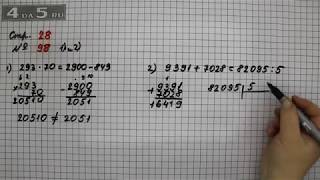 4DA5.RU
Стр. 28
№ 98 1) и 2)
1) 293 · 70 = 2900 - 849
2) 9391 + 7028 = 82095 : 5
293
70
20510
2900
849
2051
9391
+ 7028
16419
82095 5
20510 ≠ 2051